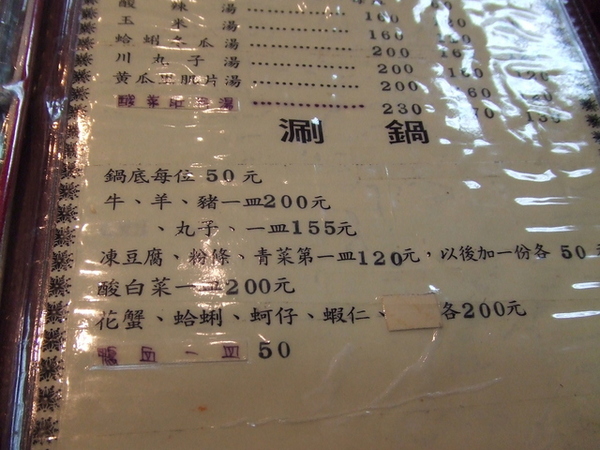 酸辣湯
玉米湯 …………… 160
蛤蜊冬瓜湯 …………… 160
川丸子湯 …………… 200
黃瓜里肌片湯 …………… 200 160 120
…………… 200 160 120
…………… 230 170 130
涮鍋
鍋底每位50元
牛、羊、豬一皿200元
、丸子、一皿155元
凍豆腐、粉條、青菜第一皿120元，以後加一份各50
酸白菜一皿200元
花蟹、蛤蜊、蚵仔、蝦仁、各200元
一皿 50